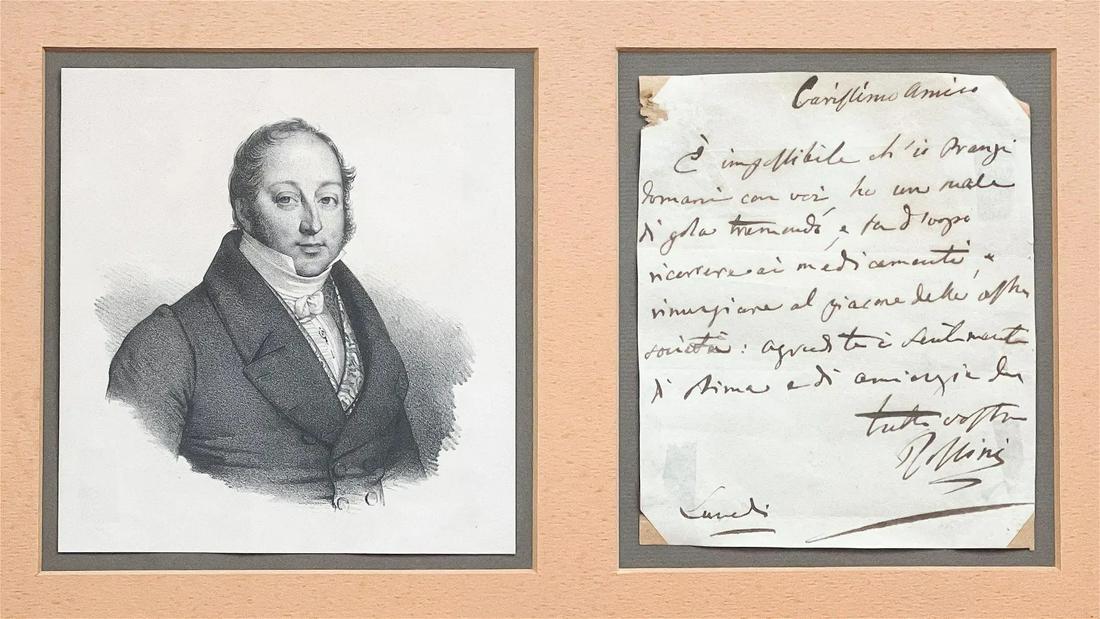 Carissimo Amico
È impossibile ch'io Pranzi
domani con voi, ho un male
di gola tremendo, e fa d'uopo
ricorrere ai medicamenti, e
rinunziare al piacere della vostra
società: aggradite i sentimenti
di stima e di amicizia del
tutto vostro
Rossini
Lunedì